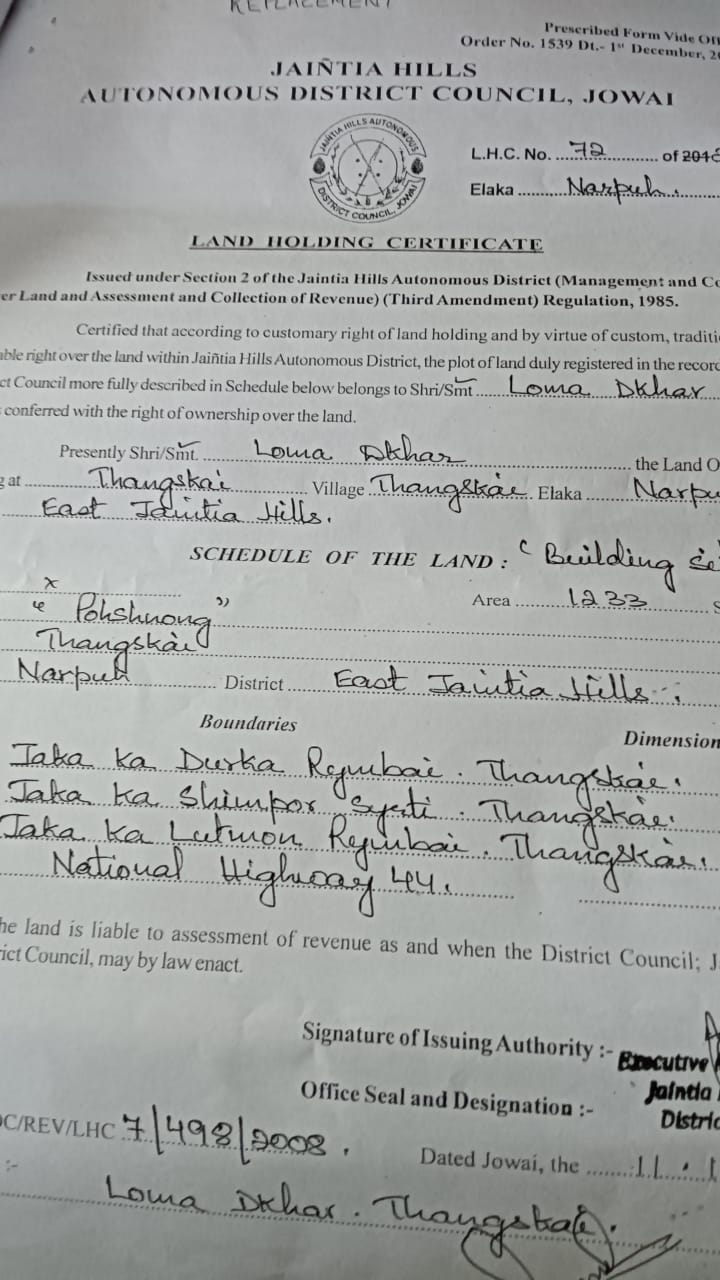 REPLACEMENT
Prescribed Form Vide Off
Order No. 1539 Dt.- 1st December, 20
JAIÑTIA HILLS
AUTONOMOUS DISTRICT COUNCIL, JOWAI
JAINTIA HILLS AUTONOMOUS DISTRICT COUNCIL, JOWAI
L.H.C. No. 72 of 2018
Elaka Narpuh.
LAND HOLDING CERTIFICATE
Issued under Section 2 of the Jaintia Hills Autonomous District (Management and Co
er Land and Assessment and Collection of Revenue) (Third Amendment) Regulation, 1985.
Certified that according to customary right of land holding and by virtue of custom, traditi
able right over the land within Jaiñtia Hills Autonomous District, the plot of land duly registered in the record
ct Council more fully described in Schedule below belongs to Shri/Smt Loma Dkhar
conferred with the right of ownership over the land.
Presently Shri/Smt. Loma Dkhar the Land O
g at Thangskai Village Thangskai. Elaka Narpu
East Jaintia Hills.
SCHEDULE OF THE LAND : "Building Se
x
Area 1233 S
"Pohshnong"
Thangskai
Narpuh District East Jaintia Hills.
Boundaries
Dimension
Jaka ka Durka Rymbai. Thangskai.
Jaka ka Shimpor Syrti. Thangskai.
Jaka ka Lutmon Rymbai. Thangskai.
National Highway 44.
he land is liable to assessment of revenue as and when the District Council; J
rict Council, may by law enact.
Signature of Issuing Authority :-
Executive
Office Seal and Designation :-
Jaintia
Distric
OC/REV/LHC 7/498/2008.
Dated Jowai, the 11.1
:-
Loma Dkhar. Thangskai.